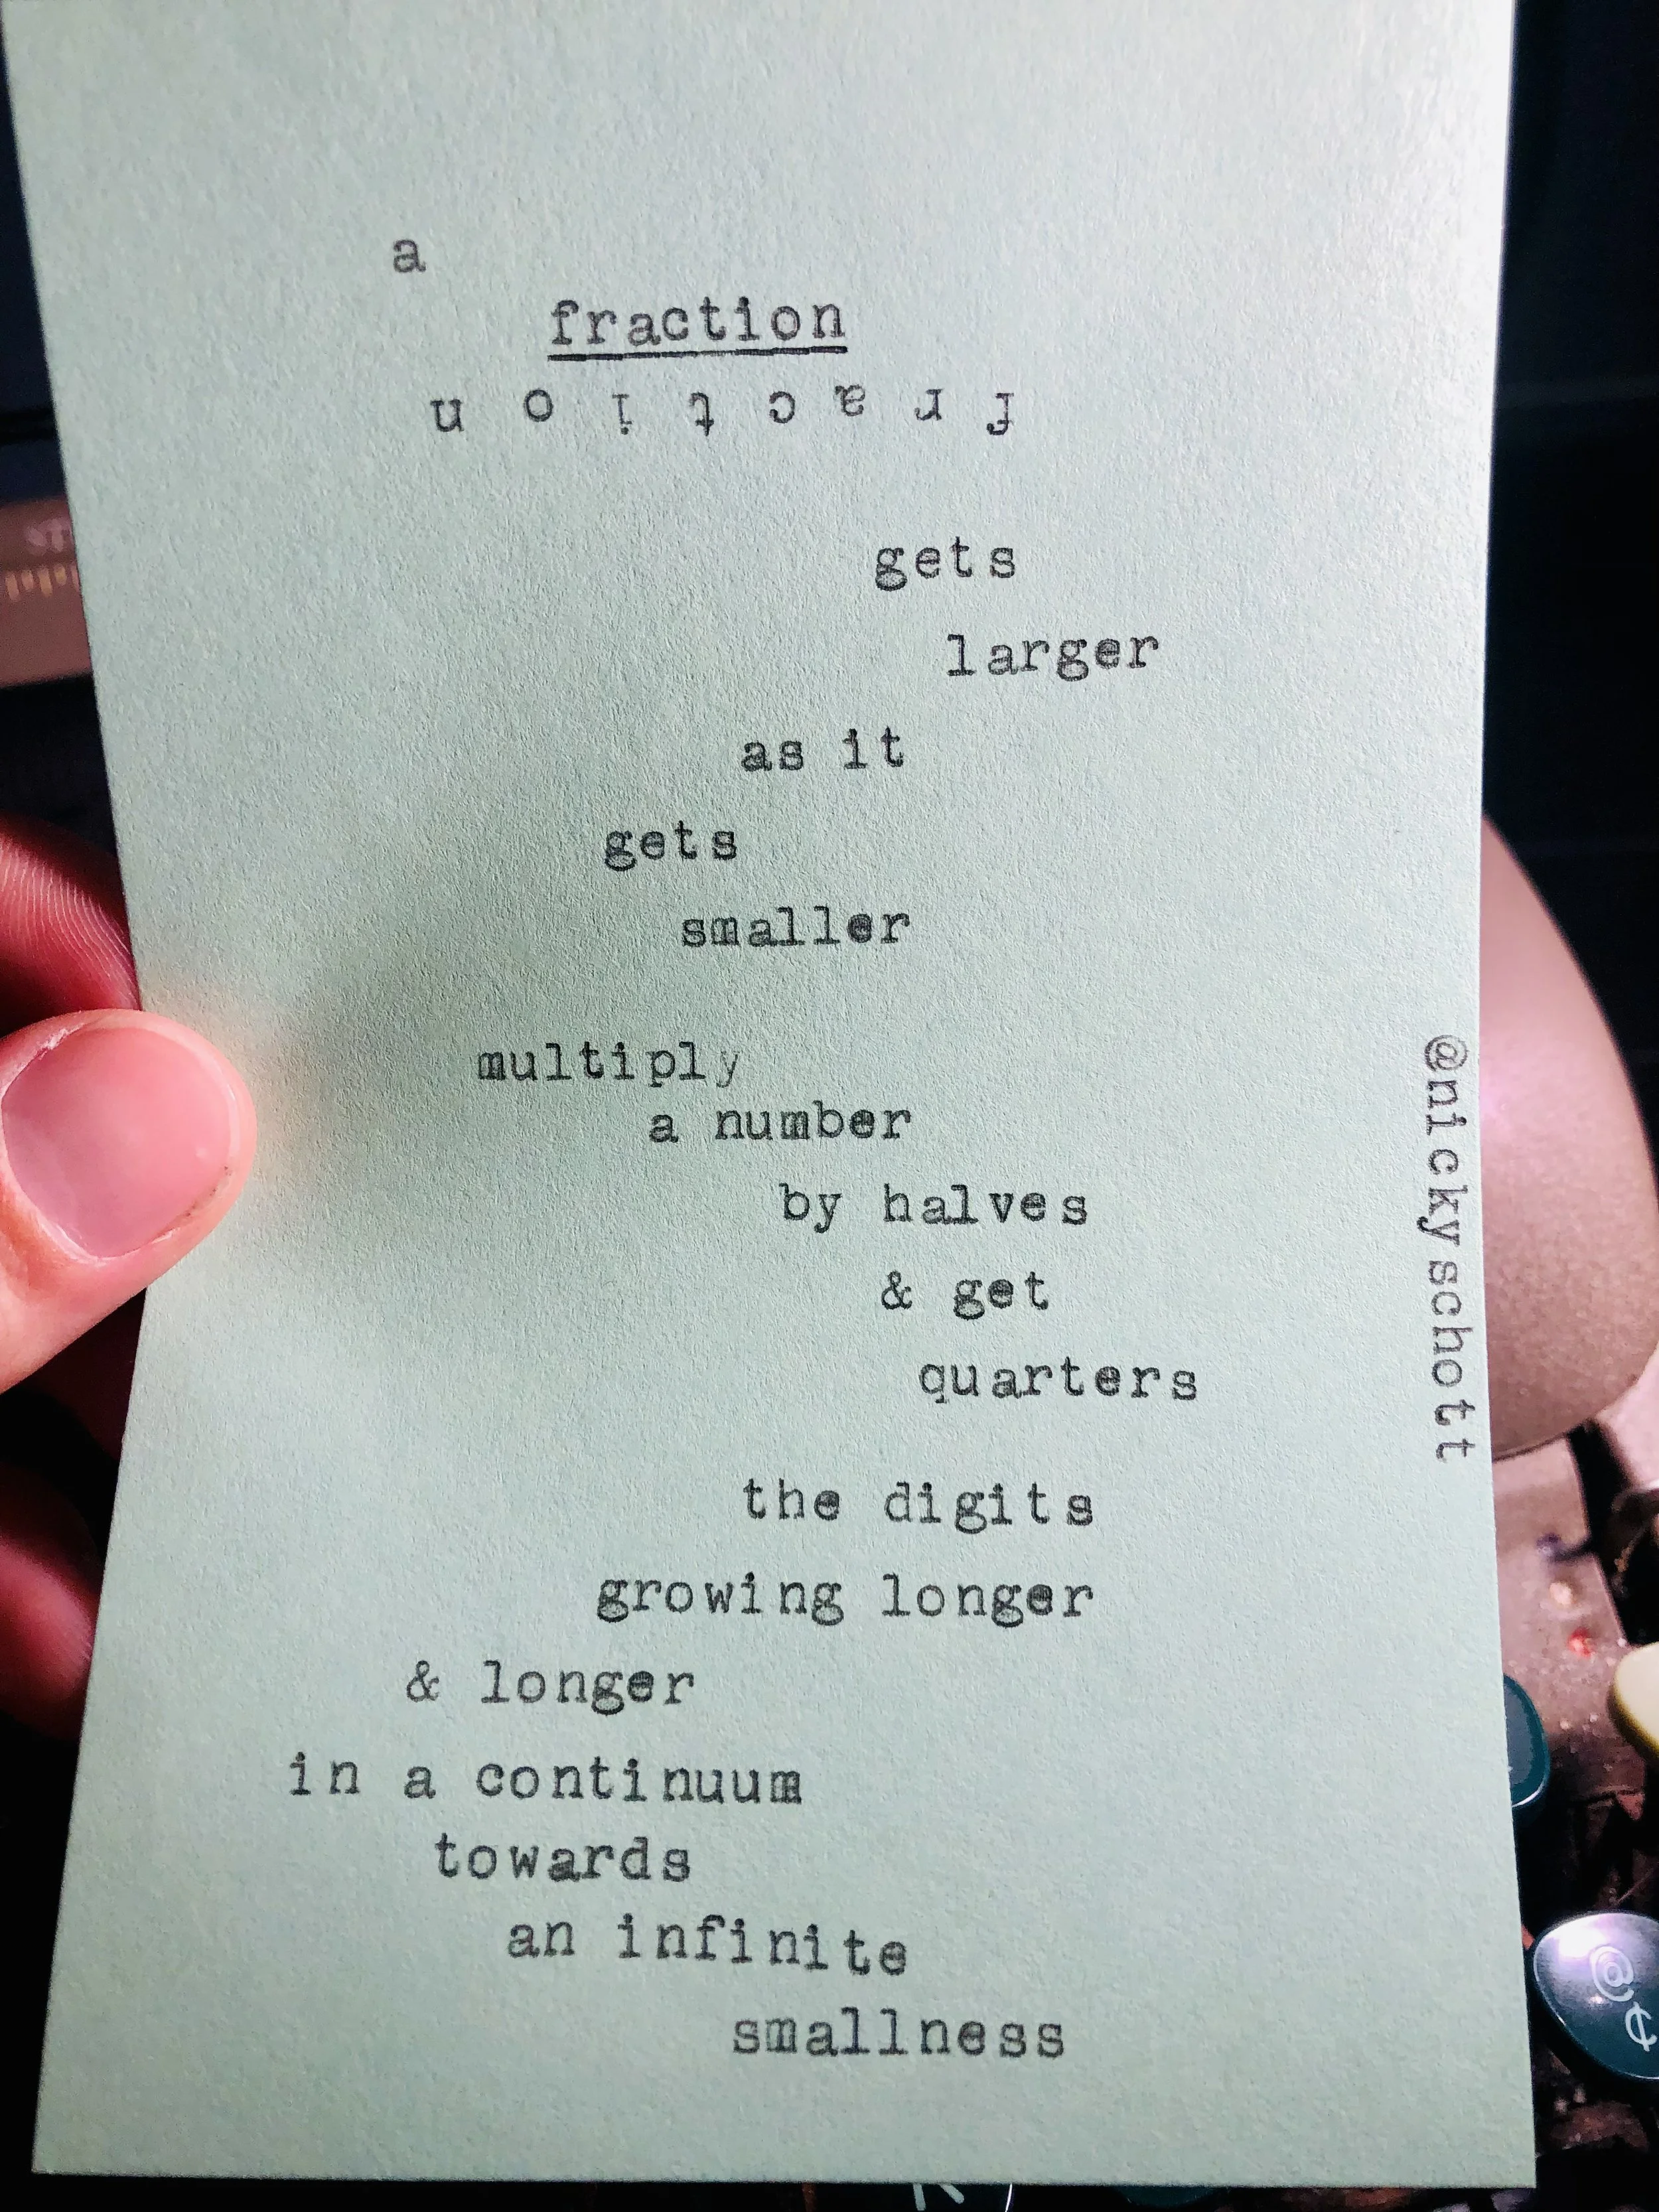 a
fraction
fraction
gets
larger
as it
gets
smaller
multiply
a number
by halves
& get
quarters
the digits
growing longer
& longer
in a continuum
towards
an infinite
smallness
@nickyschott
@
¢
K